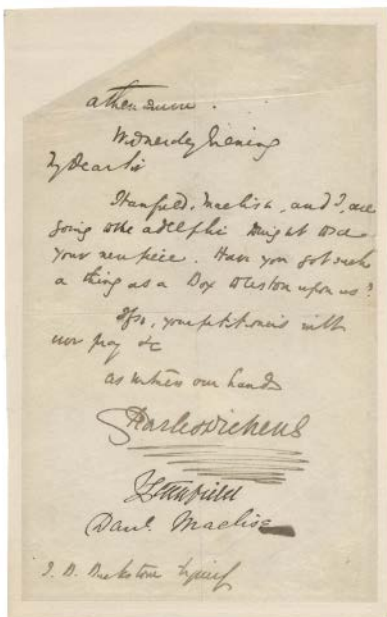 Athenaeum.
Wednesday Evening
My Dear Sir
Stanfield, Maclise, and I, are
going to the adelphi tonight to see
your new piece. Have you got such
a thing as a Box to bestow upon us?
If so, your petitioners will
ever pray &c
as witness our hands
Charles Dickens
C Stanfield
Danl. Maclise
J. B. Buckstone Esquire